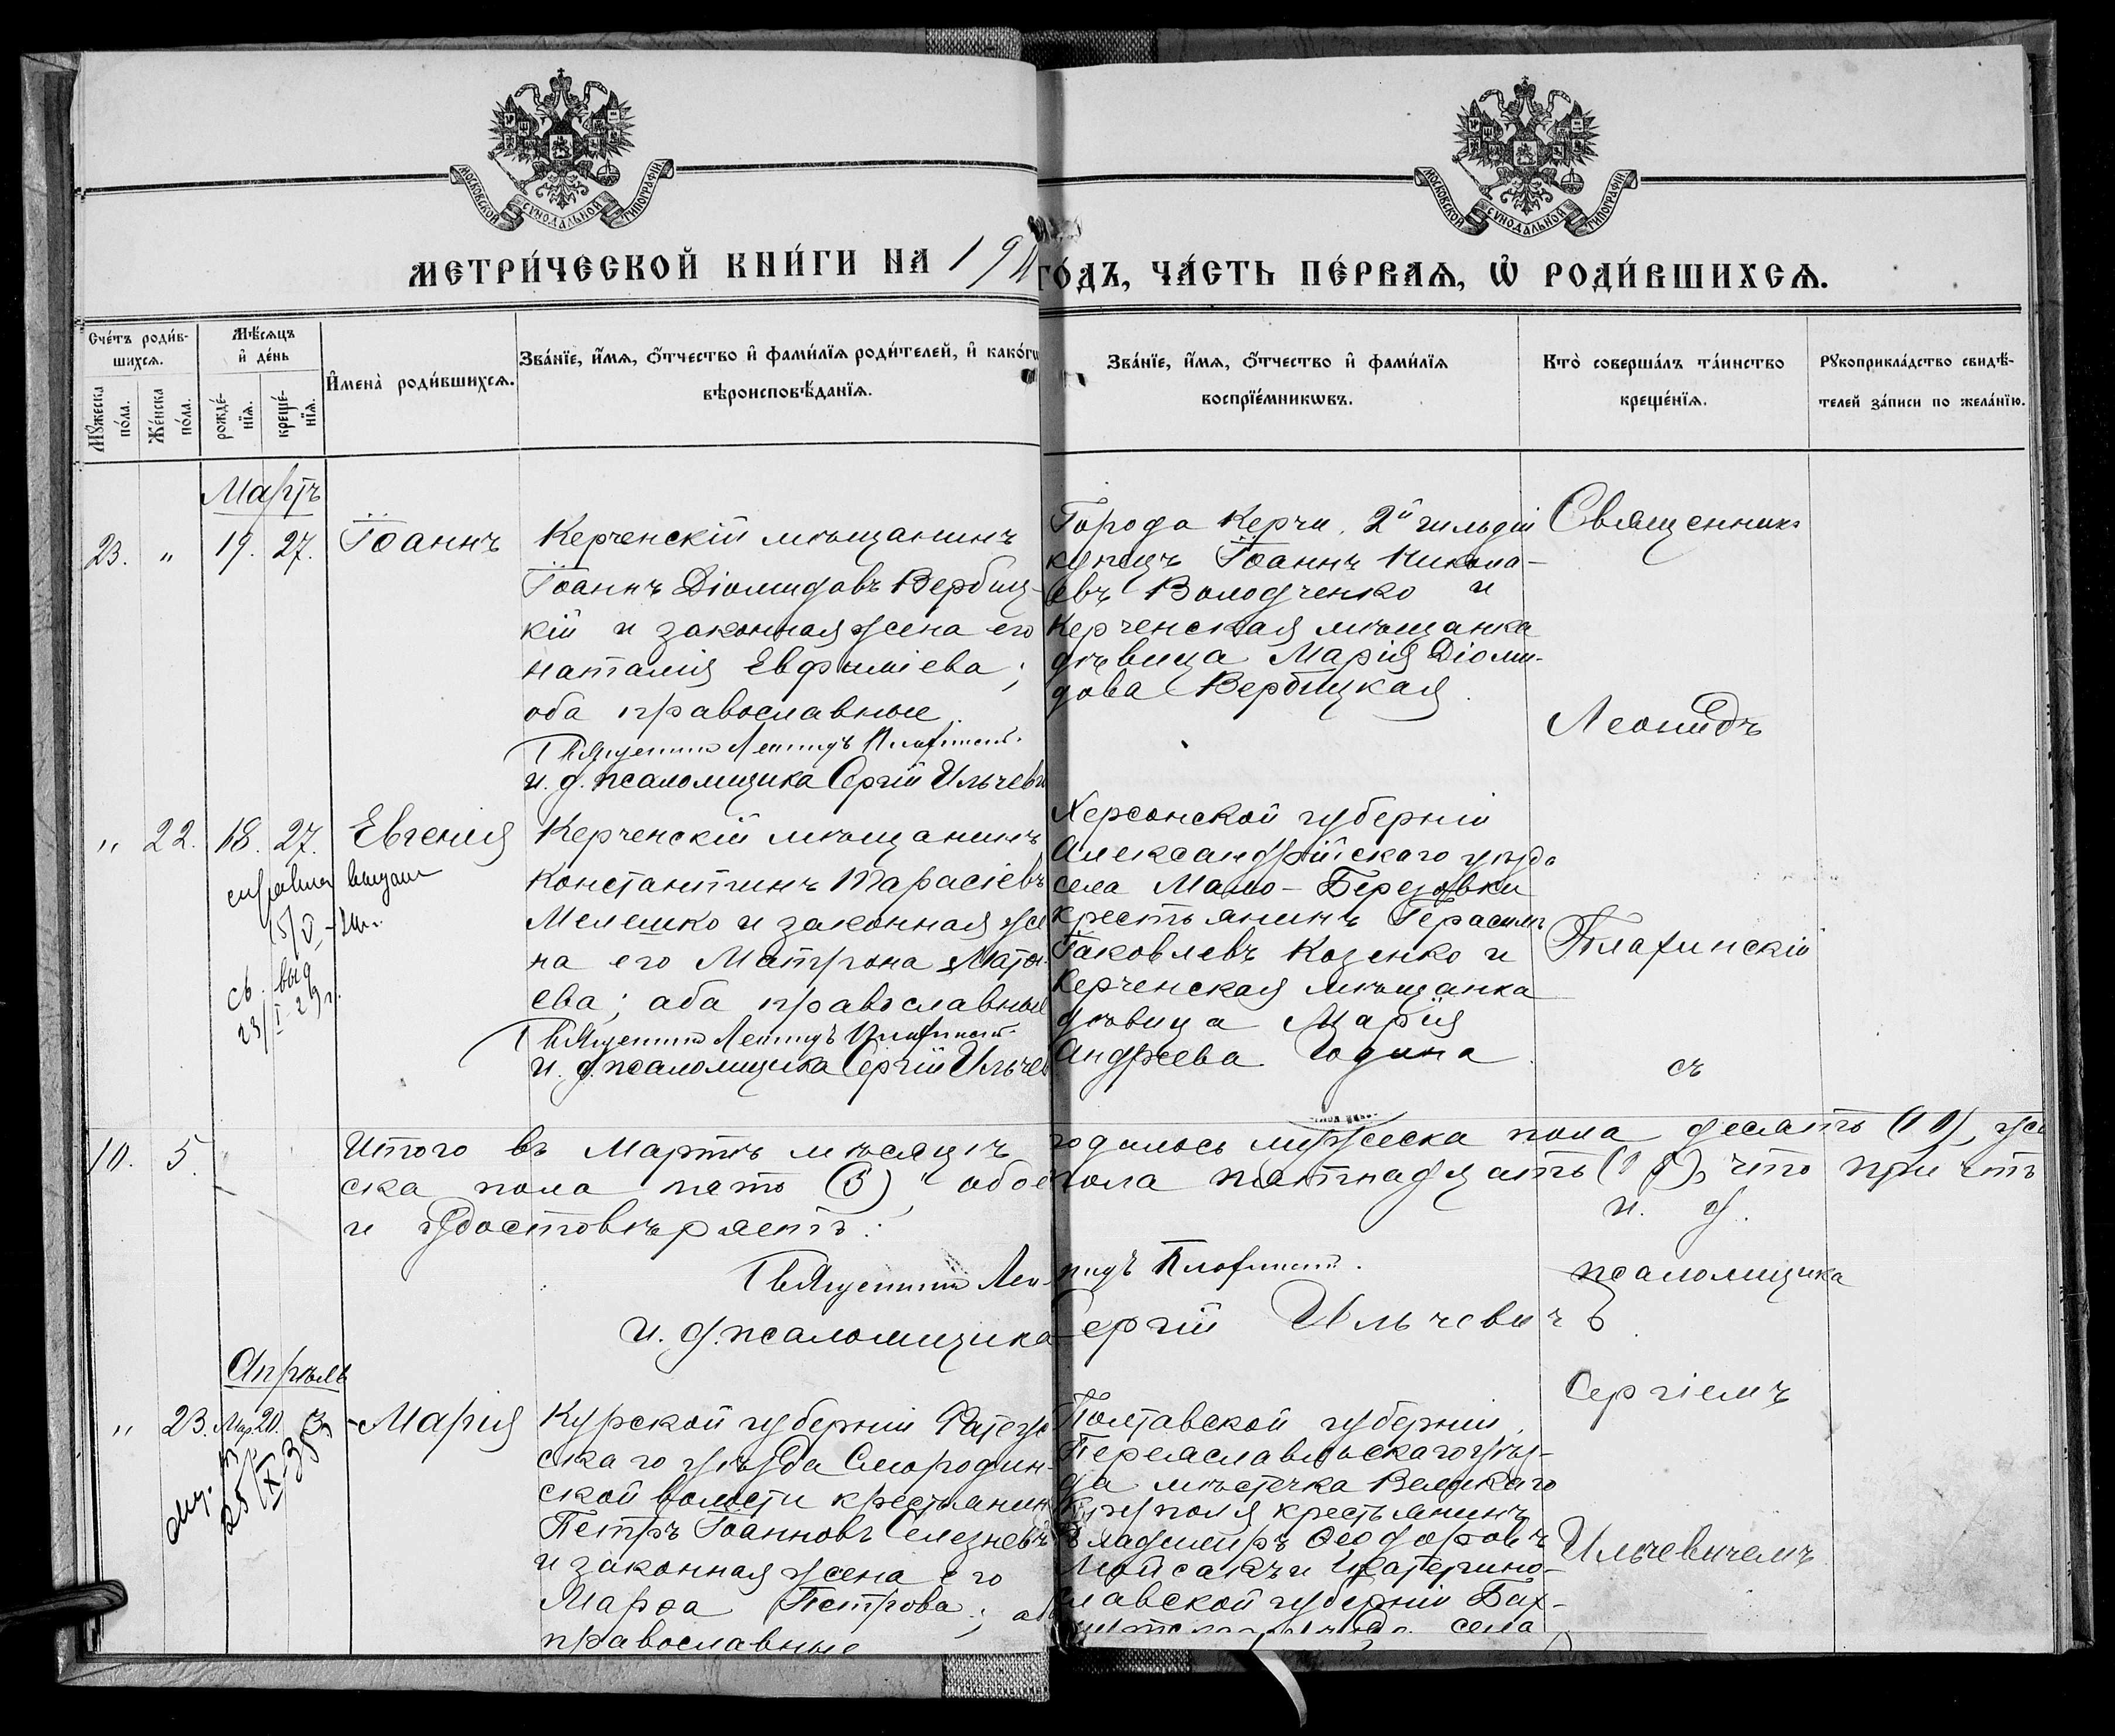 МОСКОВСКОЙ СУНОДАЛЬНОЙ ТИПОГРАФІИ
МОСКОВСКОЙ СУНОДАЛЬНОЙ ТИПОГРАФІИ
МЕТРИ́ЧЕСКОЙ КНИ́ГИ НА 191
ГО́ДЪ, ЧА́СТЬ ПЕ́РВАѦ, Ѡ҆ РОДИ́ВШИХСѦ.
Сче́тъ роди́в-
шихсѧ.
Мꙋ́жеска по́ла.
Же́нска по́ла.
Мѣ́сѧцъ
и҆ де́нь
рожде́-
нїѧ.
креще́-
нїѧ.
И҆мена̀ роди́вшихсѧ.
Зва́нїе, и҆́мѧ, ѻ҆́тчество и҆ фами́лїѧ роди́телей, и҆ како́гѡ
вѣроисповѣ́данїѧ.
Зва́нїе, и҆́мѧ, ѻ҆́тчество и҆ фами́лїѧ
воспрїе́мникѡвъ.
Кто̀ соверша́лъ та́инство
креще́нїѧ.
Рꙋкоприкла́дство свидѣ́-
телей за́писи по жела́нїю.
Мартъ
23. „ 19. 27. Іоаннъ
Керченскій мѣщанинъ
Іоаннъ Діомидовъ Вербиц-
кій и законная жена его
Наталія Евфиміева;
оба православные.
Священникъ Леонидъ
и. д. псаломщика Сергій Ильчевичъ
Города Керчи, 2й гильдіи
купецъ Іоаннъ Никола-
евъ Володченко и
Керченская мѣщанка
дѣвица Марія Діоми-
дова Вербицкая.
Священникъ
Леонидъ
„ 22. 18. 27. Евгенія
справка выдана
15/V
св. выд
23/I 29 г.
Керченскій мѣщанинъ
Константинъ Тарасіевъ
Мелешко и законная же
на его Матрона
ева; оба православные
Священникъ Леонидъ
и. д. псаломщика Сергій Ильчев
Херсонской губерніи
Александрійскаго уѣзда
села Мало-Березовки
крестьянинъ Герасимъ
Іаковлевъ Козенко и
Керченская мѣщанка
дѣвица Марія
Андреева Година
съ
10. 5.
Итого въ Мартѣ мѣсяцѣ родилось мужеска пола десять (10), жен
ска пола пять (5), обое пола пятнадцать (15), что причтъ
и удостовѣряетъ:
Священникъ Леонидъ
и. д. псаломщика Сергій Ильчевичъ
и. д.
псаломщика
Сергіемъ
Ильчевичемъ
Апрѣль
„ 23. Мар. 20. 3 Марія
25/IX
Курской губерніи Фатеж
скаго уѣзда Смородин-
ской волости крестьянин
Петръ Іоанновъ Селезневъ
и законная жена его
Марѳа Петрова; оба
православные
Полтавской губерніи,
Переяславльскаго уѣз-
да мѣстечка Великаго
крестьянинъ
Владимиръ Ѳеодоровъ
и Екатерино-
славской губерніи Бах-
села